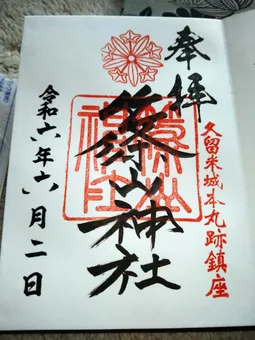 奉拝
久留米城本丸跡鎮座
篠山神社
令和六年六月二日